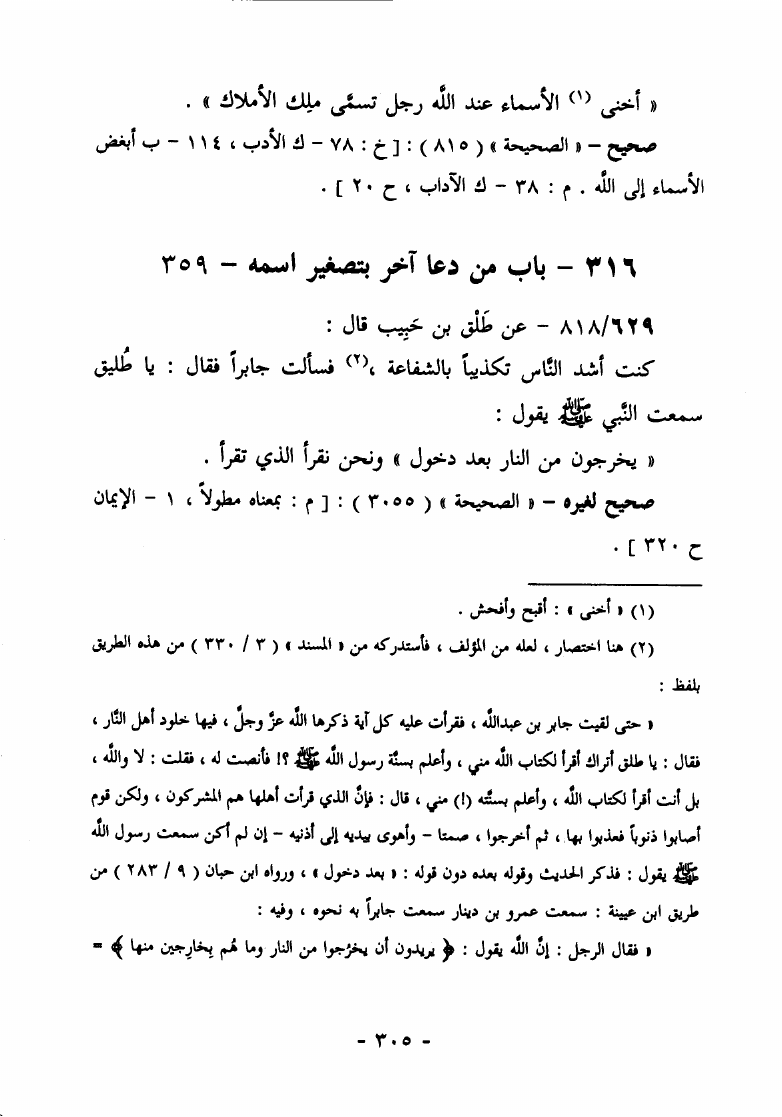 « أخنى (١) الأسماء عند الله رجل تسمَّى ملِك الأملاك » .
صحيح – « الصحيحة » ( ٨١٥ ) : [ خ : ٧٨ – ك الأدب ، ١١٤ – ب أبغض
الأسماء إلى الله . م : ٣٨ – ك الآداب ، ح ٢٠ ] .
٣١٦ – باب من دعا آخر بتصغير اسمه – ٣٥٩
٨١٨/٦٢٩ – عن طَلْق بن حَبِيب قال :
كنت أشد النَّاس تكذيباً بالشفاعة ،(٢) فسألت جابراً فقال : يا طُليق
سمعت النَّبي ﷺ يقول :
« يخرجون من النار بعد دخول » ونحن نقرأ الذي تقرأ .
صحيح لغيره – « الصحيحة » ( ٣٠٥٥ ) : [ م : بمعناه مطولاً ، ١ – الإيمان
ح ٣٢٠ ] .
(١) « أخنى » : أقبح وأفحش .
(٢) هنا اختصار ، لعله من المؤلف ، فأستدركه من « المسند » ( ٣ / ٣٣٠ ) من هذه الطريق
بلفظ :
« حتى لقيت جابر بن عبدالله ، فقرأت عليه كل آية ذكرها الله عزَّ وجلَّ ، فيها خلود أهل النَّار ،
فقال : يا طلق أتراك أقرأ لكتاب الله مني ، وأعلم بسنَّة رسول الله ﷺ ؟! فأنصت له ، فقلت : لا والله ،
بل أنت أقرأ لكتاب الله ، وأعلم بسنَّته (!) مني ، قال : فإنَّ الذي قرأت أهلها هم المشركون ، ولكن قوم
أصابوا ذنوباً فعذبوا بها ، ثم أخرجوا ، صمتا – وأهوى بيديه إلى أذنيه – إن لم أكن سمعت رسول الله
ﷺ يقول : فذكر الحديث وقوله بعده دون قوله : « بعد دخول » ، ورواه ابن حبان ( ٩ / ٢٨٣ ) من
طريق ابن عيينة : سمعت عمرو بن دينار سمعت جابراً به نحوه ، وفيه :
« فقال الرجل : إنَّ الله يقول : ﴿ يريدون أن يخرُجوا من النار وما هُم بِخارِجين منها ﴾ =
- ٣٠٥ -